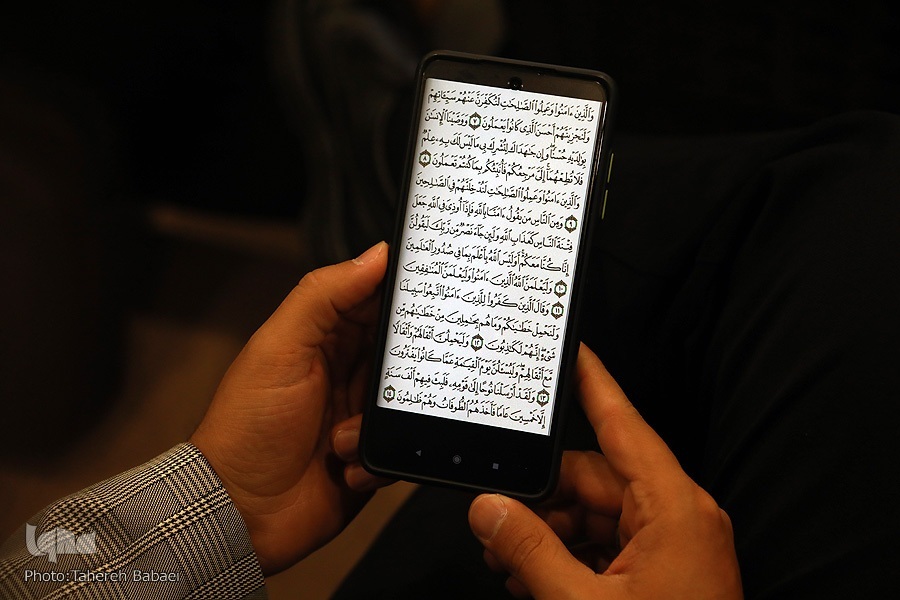 وَٱلَّذِينَ ءَامَنُوا۟ وَعَمِلُوا۟ ٱلصَّـٰلِحَـٰتِ لَنُكَفِّرَنَّ عَنْهُمْ سَيِّـَٔاتِهِمْ
وَلَنَجْزِيَنَّهُمْ أَحْسَنَ ٱلَّذِى كَانُوا۟ يَعْمَلُونَ ٧ وَوَصَّيْنَا ٱلْإِنسَـٰنَ
بِوَٰلِدَيْهِ حُسْنًا وَإِن جَـٰهَدَاكَ لِتُشْرِكَ بِى مَا لَيْسَ لَكَ بِهِۦ عِلْمٌ
فَلَا تُطِعْهُمَآ إِلَىَّ مَرْجِعُكُمْ فَأُنَبِّئُكُم بِمَا كُنتُمْ تَعْمَلُونَ ٨
وَٱلَّذِينَ ءَامَنُوا۟ وَعَمِلُوا۟ ٱلصَّـٰلِحَـٰتِ لَنُدْخِلَنَّهُمْ فِى ٱلصَّـٰلِحِينَ
٩ وَمِنَ ٱلنَّاسِ مَن يَقُولُ ءَامَنَّا بِٱللَّهِ فَإِذَآ أُوذِىَ فِى ٱللَّهِ جَعَلَ
فِتْنَةَ ٱلنَّاسِ كَعَذَابِ ٱللَّهِ وَلَئِن جَآءَ نَصْرٌ مِّن رَّبِّكَ لَيَقُولُنَّ
إِنَّا كُنَّا مَعَكُمْ أَوَلَيْسَ ٱللَّهُ بِأَعْلَمَ بِمَا فِى صُدُورِ ٱلْعَـٰلَمِينَ
١٠ وَلَيَعْلَمَنَّ ٱللَّهُ ٱلَّذِينَ ءَامَنُوا۟ وَلَيَعْلَمَنَّ ٱلْمُنَـٰفِقِينَ
١١ وَقَالَ ٱلَّذِينَ كَفَرُوا۟ لِلَّذِينَ ءَامَنُوا۟ ٱتَّبِعُوا۟ سَبِيلَنَا
وَلْنَحْمِلْ خَطَـٰيَـٰكُمْ وَمَا هُم بِحَـٰمِلِينَ مِنْ خَطَـٰيَـٰهُم مِّن
شَىْءٍ إِنَّهُمْ لَكَـٰذِبُونَ ١٢ وَلَيَحْمِلُنَّ أَثْقَالَهُمْ وَأَثْقَالًا
مَّعَ أَثْقَالِهِمْ وَلَيُسْـَٔلُنَّ يَوْمَ ٱلْقِيَـٰمَةِ عَمَّا كَانُوا۟ يَفْتَرُونَ
١٣ وَلَقَدْ أَرْسَلْنَا نُوحًا إِلَىٰ قَوْمِهِۦ فَلَبِثَ فِيهِمْ أَلْفَ سَنَةٍ
إِلَّا خَمْسِينَ عَامًا فَأَخَذَهُمُ ٱلطُّوفَانُ وَهُمْ ظَـٰلِمُونَ ١٤
iqna
Photo:Tahereh Babaei